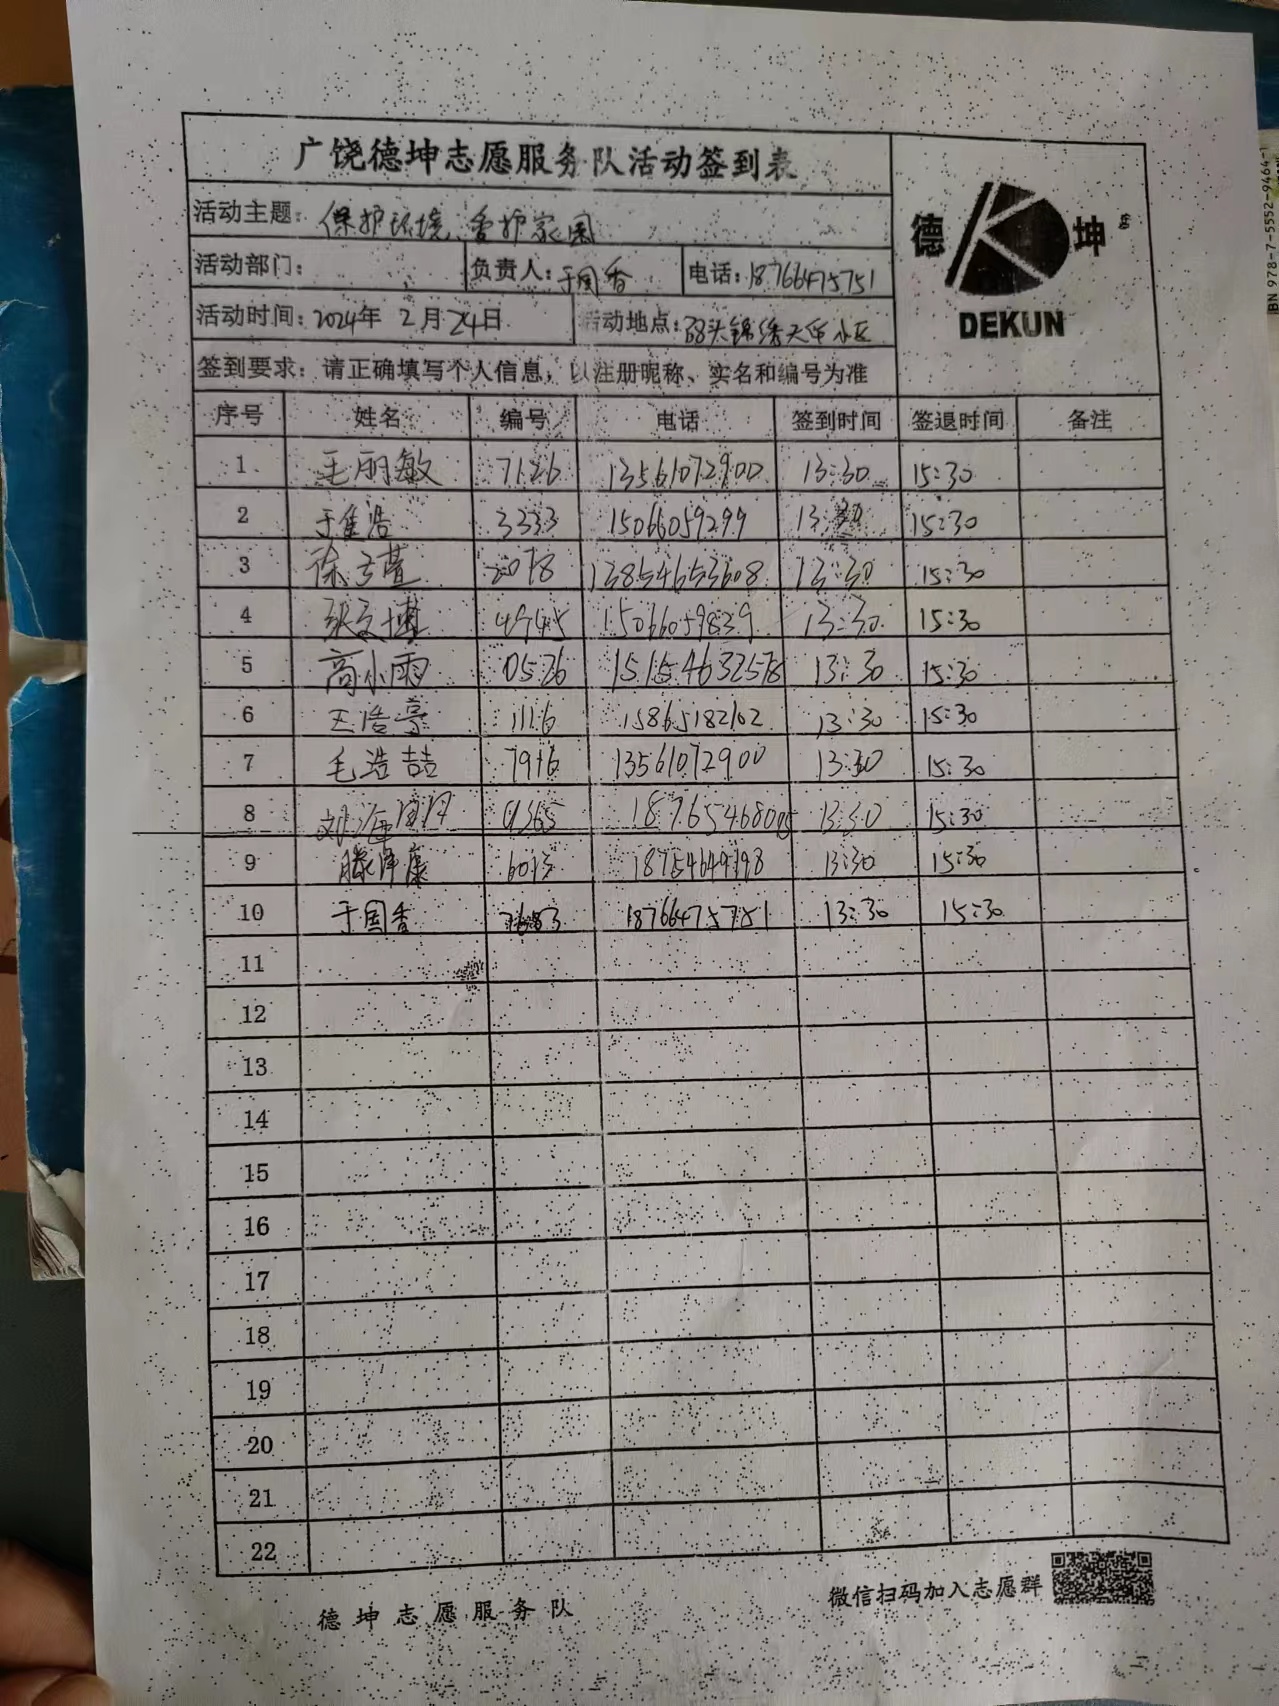 广饶德坤志愿服务队活动签到表
活动主题：保护环境、爱护家园
德 坤
DEKUN
活动部门： 负责人：于国香 电话：18766475751
活动时间：2024年 2月24日 活动地点：码头锦绣天年小区
签到要求：请正确填写个人信息，以注册昵称、实名和编号为准
序号 姓名 编号 电话 签到时间 签退时间 备注
1 毛丽敏 7126 13561072900 13:30 15:30
2 于佳浩 3333 15066059299 13:30 15:30
3 徐 078 13854653608 13:30 15:30
4 张文博 15066059839 13:30 15:30
5 高小雨 0526 15154632578 13:30 15:30
6 王浩亭 1116 15865182102 13:30 15:30
7 毛浩喆 7916 13561072900 13:30 15:30
8 刘海 13:30 15:30
9 滕泽康 6013 18754649198 13:30 15:30
10 于国香 18766475751 13:30 15:30
11
12
13
14
15
16
17
18
19
20
21
22
德坤志愿服务队
微信扫码加入志愿群
BN 978-7-5552-9464-1